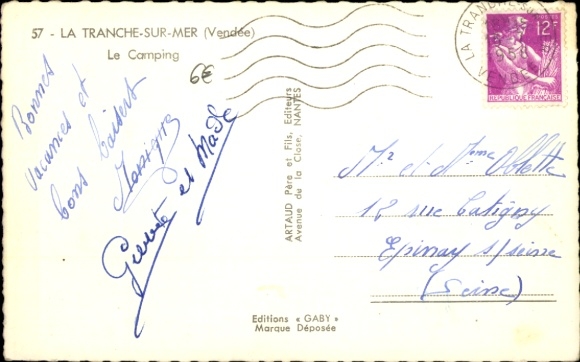 57 - LA TRANCHE-SUR-MER (Vendée)
Le Camping
6€
Bonnes
vacances et
bons baisers
et Made
ARTAUD Père et Fils, Editeurs
Avenue de la Close, NANTES
Editions « GABY »
Marque Déposée
LA TRANCHE-SUR
VENDÉE
POSTES
12F
REPUBLIQUE FRANÇAISE
Mr et Mme
12 rue Catigny
Epinay s/seine
(Seine)